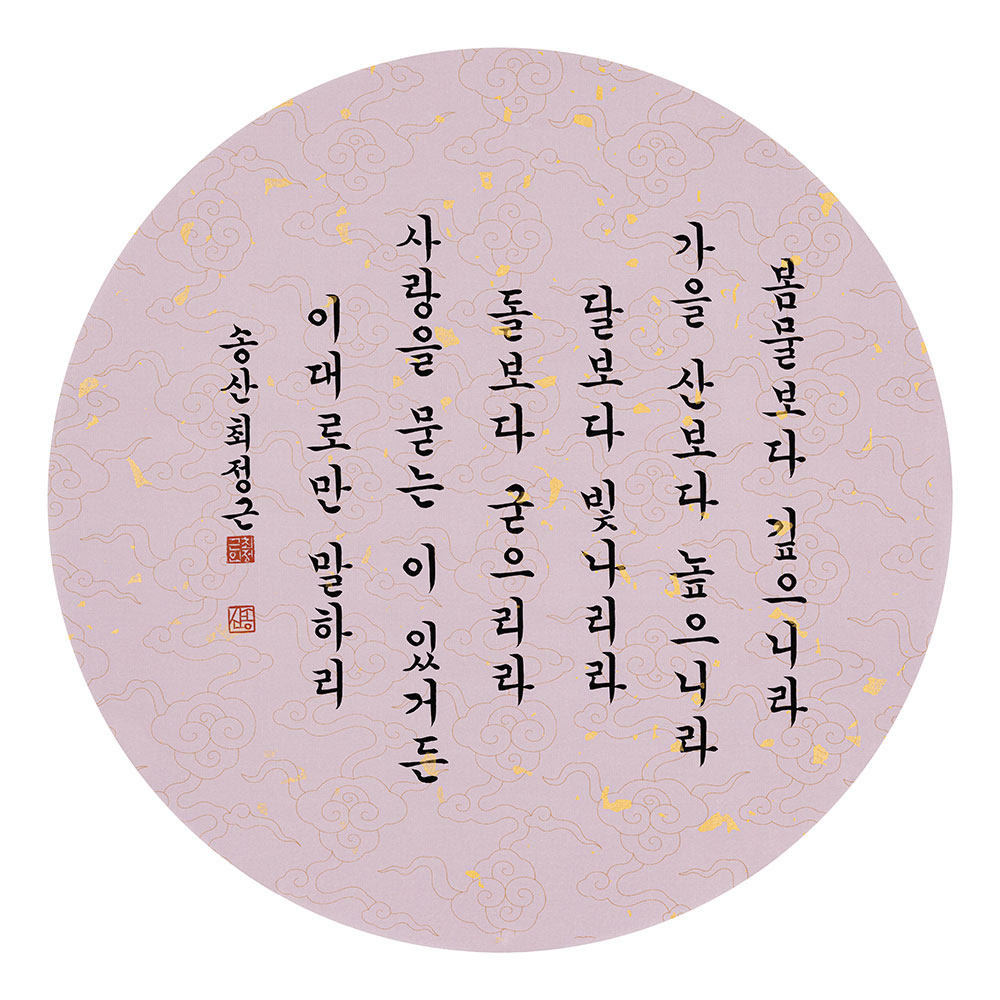 봄물보다 깊으니라
가을 산보다 높으니라
달보다 빛나리라
돌보다 굳으리라
사랑을 묻는 이 있거든
이대로만 말하리
송산 최정근
최정
근인
송산